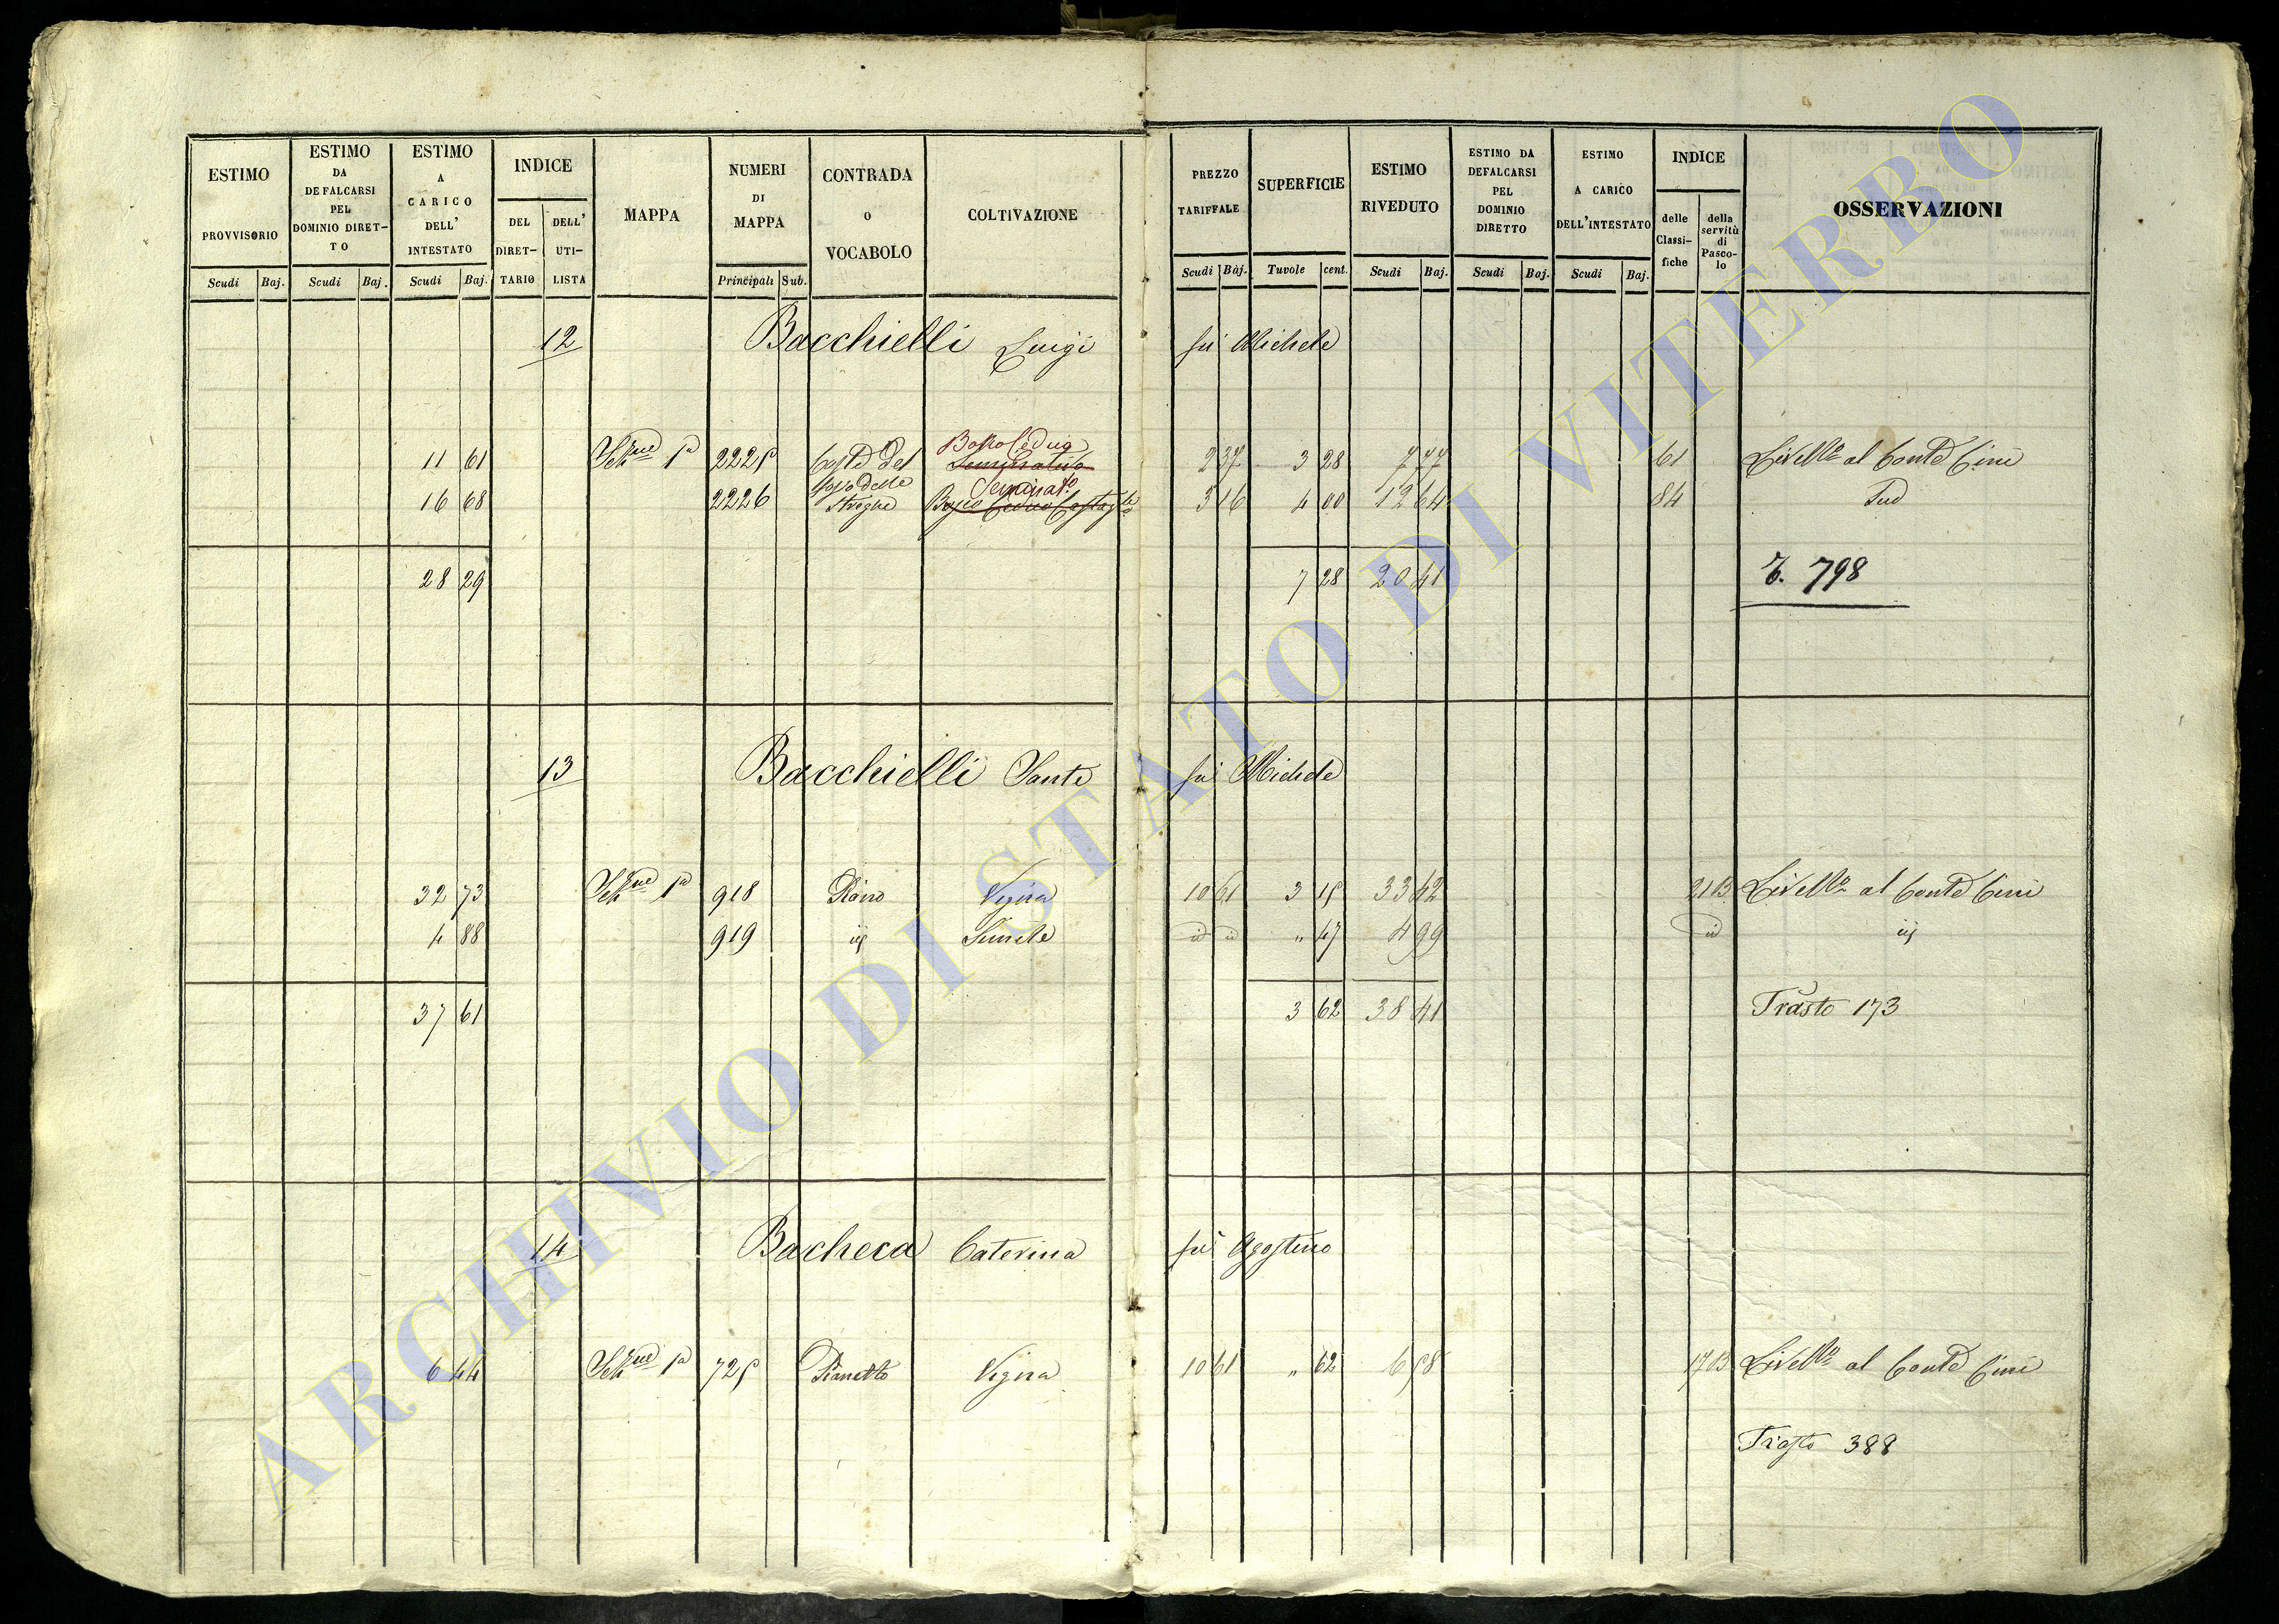 ESTIMO PROVVISORIO
Scudi Baj.
ESTIMO DA DEFALCARSI PEL DOMINIO DIRETTO
Scudi Baj.
ESTIMO A CARICO DELL' INTESTATO
Scudi Baj.
INDICE
DEL DIRET-TARIO
DELL' UTI-LISTA
MAPPA
NUMERI DI MAPPA
Principali Sub.
CONTRADA O VOCABOLO
COLTIVAZIONE
PREZZO TARIFFALE
Scudi Baj.
SUPERFICIE
Tavole cent.
ESTIMO RIVEDUTO
Scudi Baj.
ESTIMO DA DEFALCARSI PEL DOMINIO DIRETTO
Scudi Baj.
ESTIMO A CARICO DELL'INTESTATO
Scudi Baj.
INDICE
delle Classi-fiche
della servitù di Pasco-lo
OSSERVAZIONI
12 Bacchielli Luigi fu Michele
11 61 Sez.ne 1a 2225 Coste del Bosco Ceduo Seminativo 2 37 3 28 7 77 61 Livello al Conte Cini
fosso delle
16 68 2226 Streghe Seminat.o Bosco Ceduo Castag.le 3 16 4 00 12 64 84 Sud
28 29 7 28 20 41 T. 798
13 Bacchielli Sante fu Michele
32 73 Sez.ne 1a 918 Piano Vigna 10 61 3 15 33 42 2103 Livello al Conte Cini
4 88 919 id Simile id id " 47 4 99 id id
37 61 3 62 38 41 Trasto 173
14 Bacheca Caterina fu Agostino
6 44 Sez.ne 1a 725 Pianetto Vigna 10 61 " 62 6 58 1703 Livello al Conte Cini
Trasto 388
ARCHIVIO DI STATO DI VITERBO